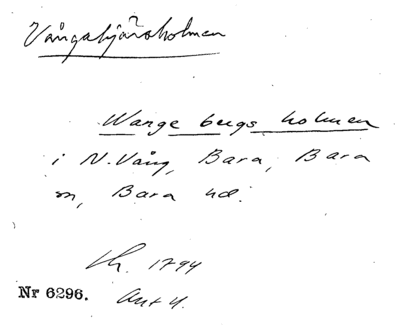 Vångahjärsholmen
Wange bergs holmen
i N. Vång, Bara, Bara
sn, Bara hd.
Lh. 1794
Nr 6296. Ant 4.